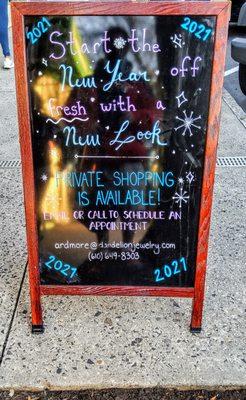 2021 2021
Start the
New Year off
fresh with a
New Look
PRIVATE SHOPPING
IS AVAILABLE!
EMAIL OR CALL TO SCHEDULE AN
APPOINTMENT
ardmore@dandelionjewelry.com
(610) 649-8303
2021 2021